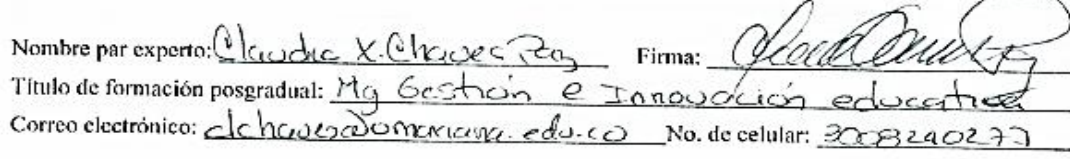 Nombre par experto: Claudia X. Chaves Paz Firma:
Título de formación posgradual: Mg Gestión e Innovación educativa
Correo electrónico: clchaves@umariana.edu.co No. de celular: 3008240277